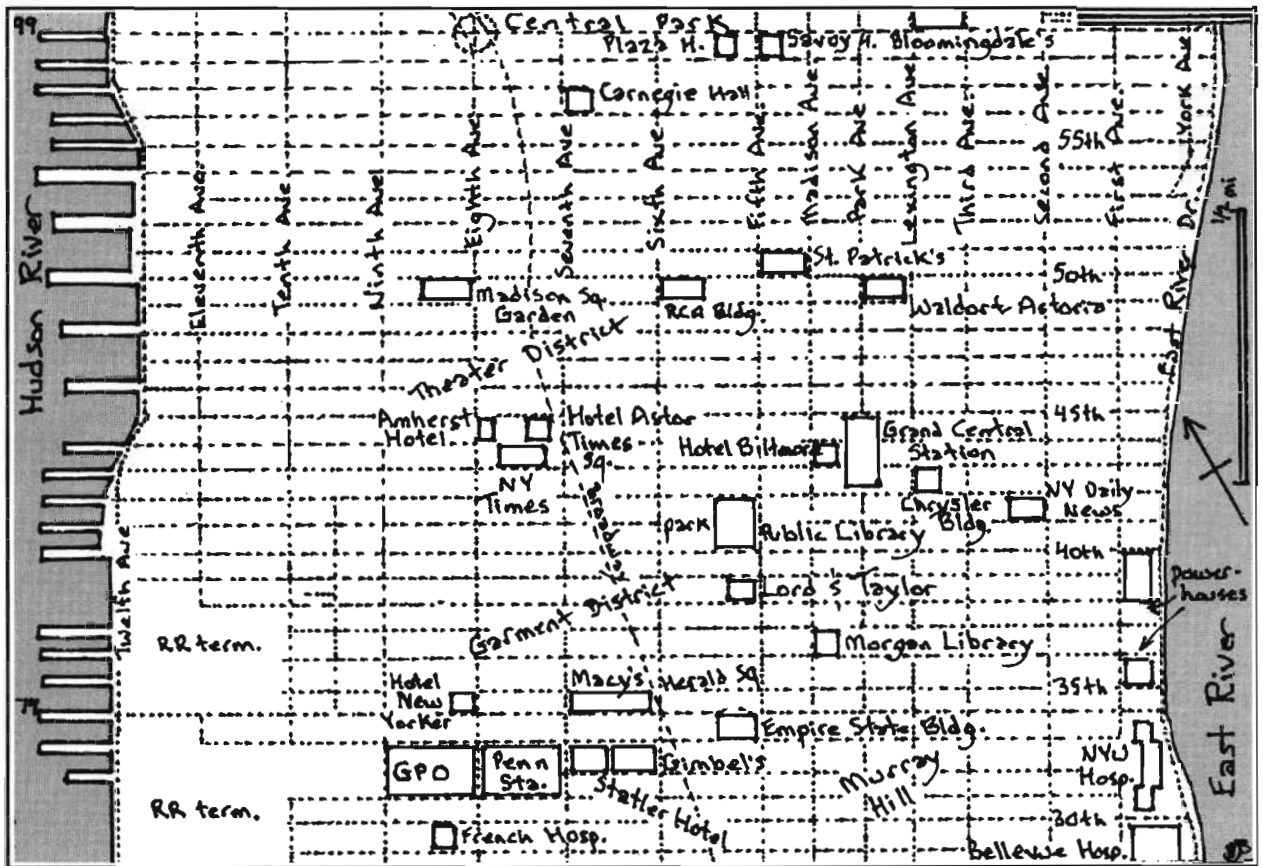 99
Central Park
Plaza H.
Savoy H.
Bloomingdale's
Carnegie Hall
55th
York Ave
Eleventh Ave.
Tenth Ave
Ninth Ave
Eighth Ave
Seventh Ave
Sixth Ave
Fifth Ave
Madison Ave
Park Ave
Lexington Ave
Third Ave
Second Ave
First Ave
East River Dr.
1/2 mi
Hudson River
St. Patrick's
50th
Madison Sq.
Garden
RCA Bldg.
Waldorf Astoria
Theater District
45th
Amherst
Hotel
Hotel Astor
Times
Sq.
NY
Times
Hotel Biltmore
Grand Central
Station
Chrysler
Bldg.
NY Daily
News
Broadway
park
Public Library
40th
power-
houses
Twelth Ave
Lord & Taylor
Garment District
RR term.
Morgan Library
Hotel
New
Yorker
Macy's
Herald Sq
35th
Empire State Bldg.
GPO
Penn
Sta.
Gimbel's
Statler Hotel
Murray
Hill
NYU
Hosp.
East River
RR term.
French Hosp.
30th
Bellevue Hosp.